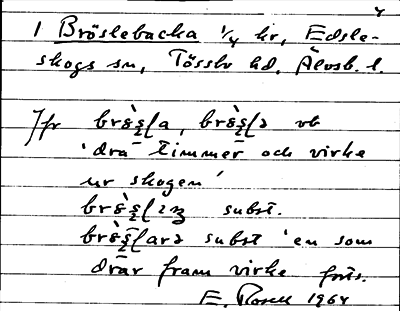 1 Bröslebacka 1/4 hr, Edsle-
skogs sn, Tössbo hd, Älvsb. l.
Jfr brö̀sla, brö̀slə vb
'dra timmer och virke
ur skogen'
subst.
subst 'en som
drar fram virke forts.
E. Rosell 1964